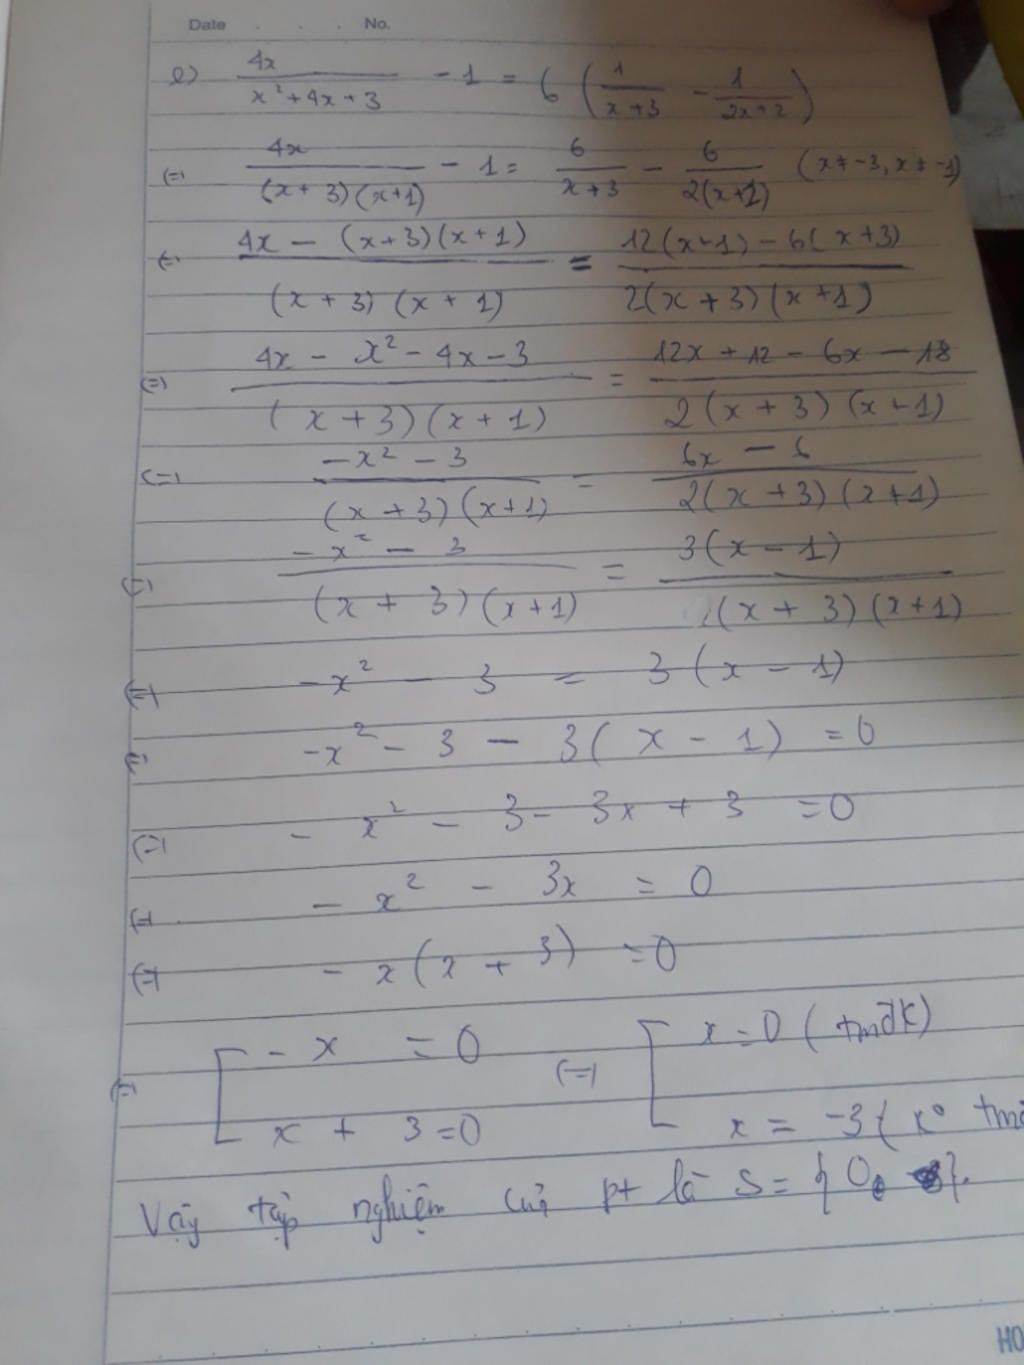 Date . . . No.
e) 4x / (x² + 4x + 3) - 1 = 6 ( 1 / (x + 3) - 1 / (2x + 2) )
(=) 4x / ((x + 3)(x + 1)) - 1 = 6 / (x + 3) - 6 / (2(x + 1)) (x ≠ -3, x ≠ -1)
(=) (4x - (x + 3)(x + 1)) / ((x + 3)(x + 1)) = (12(x + 1) - 6(x + 3)) / (2(x + 3)(x + 1))
(=) (4x - x² - 4x - 3) / ((x + 3)(x + 1)) = (12x + 12 - 6x - 18) / (2(x + 3)(x + 1))
(=) (-x² - 3) / ((x + 3)(x + 1)) = (6x - 6) / (2(x + 3)(x + 1))
(=) (-x² - 3) / ((x + 3)(x + 1)) = 3(x - 1) / ((x + 3)(x + 1))
(=) -x² - 3 = 3(x - 1)
(=) -x² - 3 - 3(x - 1) = 0
(=) - x² - 3 - 3x + 3 = 0
(=) - x² - 3x = 0
(=) - x(x + 3) = 0
(=) [ - x = 0 (=) [ x = 0 (tmđk)
x + 3 = 0 x = -3 (K°
Vậy tập nghiệm của pt là S = {0}.
HO